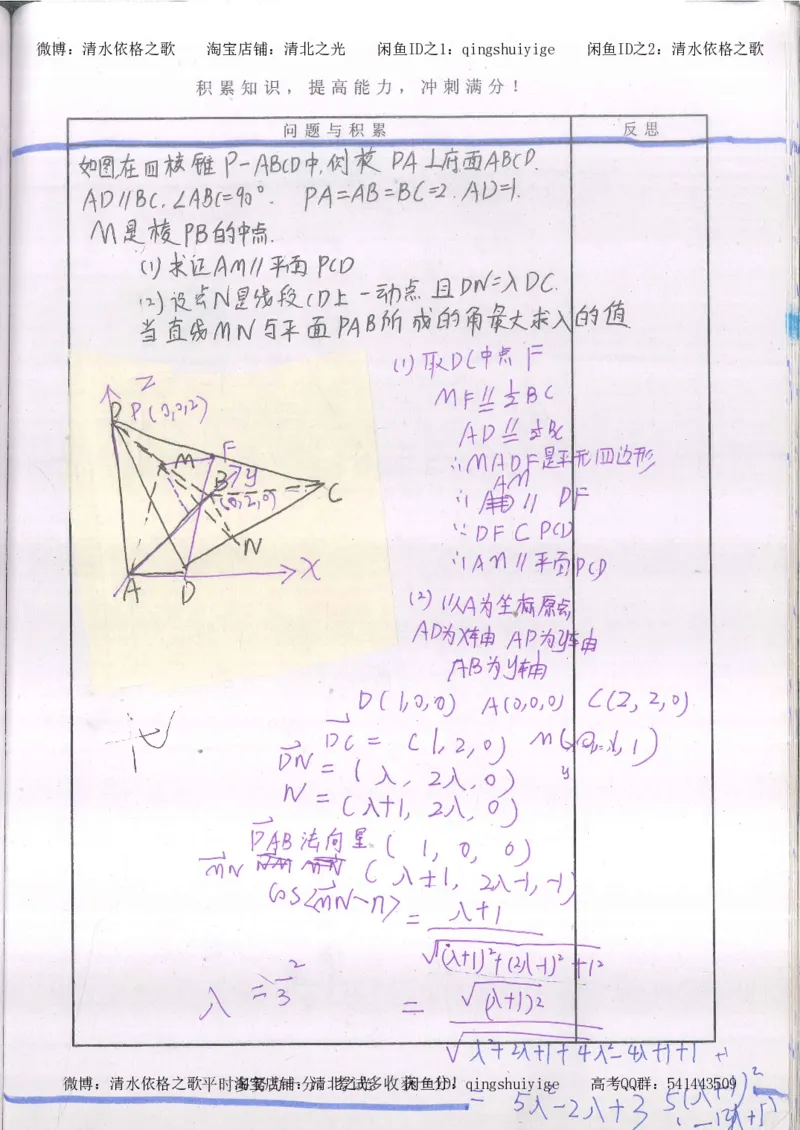 微博：清水依格之歌 淘宝店铺：清北之光 闲鱼ID之1：qingshuiyige 闲鱼ID之2：清水依格之歌
积累知识，提高能力，冲刺满分！
问题与积累 反思
如图在四棱锥 P-ABCD中,侧棱 PA⊥底面ABCD.
AD//BC.∠ABC=90°. PA=AB=BC=2.AD=1.
M是棱PB的中点.
(1)求证AM//平面PCD
(2)设点N是线段CD上一动点 且DN=λDC.
当直线MN与平面PAB所成的角最大求λ的值
(1)取DC中点 F
MF∥= ½BC
AD∥= ½BC
∴MADF是平形四边形
AM
∴ // DF
∵DF⊂PCD
∴AM//平面PCD
Z
P P(0,0,2)
M F
y
B
(0,2,0)
C
N
X
A D
(2) 以A为坐标原点
AD为X轴由 AP为y轴由
AB为y轴
D(1,0,0) A(0,0,0) C(2,2,0)
DC = (1,2,0) M( ,1)
DN = (λ,2λ,0)
y
N = (λ+1, 2λ, 0)
PAB法向量(1, 0, 0)
MN (λ+1, 2λ-1,-1)
cos<MN-n> = λ+1
√(λ+1)²+(2λ-1)²+1²
λ = 2/3
= √(λ+1)2
√λ²+2λ+1+4λ²-4λ+1+1
微博：清水依格之歌 淘宝店铺：清北之光 闲鱼ID：qingshuiyige 高考QQ群：541443509
= 5λ²-2λ+3 5(λ+1)²
-12λ+5